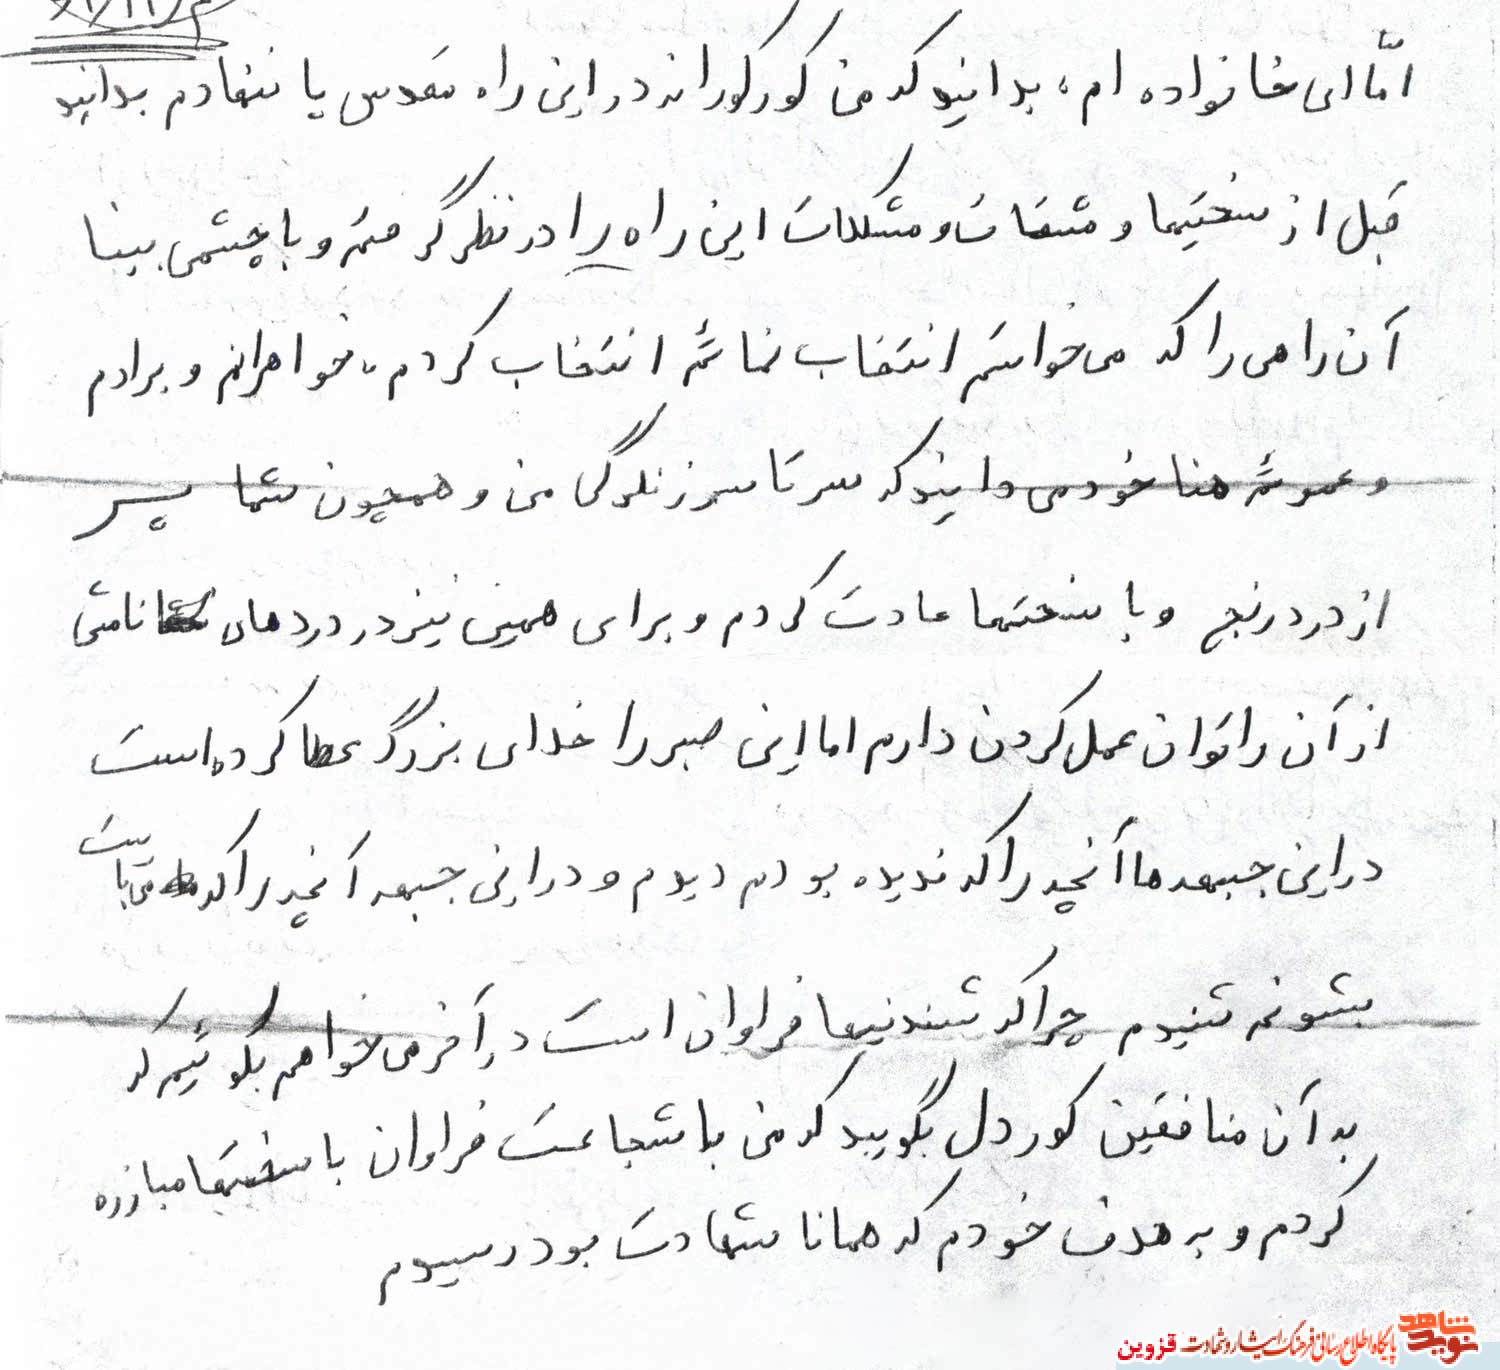 امّا ای خانواده ام، بدانید که من کورکورانه در این راه مقدس پا ننهادم بدانید
قبل از سختیها و مشقات و مشکلات این راه را در نظر گرفتم و با چشمی بینا
آن راهی را که می خواستم انتخاب نمائم انتخاب کردم، خواهرانم و برادرم
و عمو شما خود می دانید که سرتاسر زندگی من و همچون شما پر
از درد رنج و با سختیها عادت کردم و برای همین نیز در دردهای ناشی
از آن را توان عمل کردن دارم اما این صبر را خدای بزرگ عطا کرده است
در این جبهه ها آنچه را که ندیده بودم دیدم و در این جبهه آنچه را که می بایست
بشنوم شنیدم چرا که شنیدنیها فراوان است در آخر می خواهم بگوئیم که
به آن منافقین کور دل بگویید که من با شجاعت فراوان با سختیها مبارزه
کردم و به هدف خودم که همانا شهادت بود رسیدم
نوید شاهد پایگاه اطلاع رسانی فرهنگ ایثار و شهادت قزوین